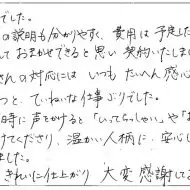 でした。
の説明も分かりやすく、費用は予定した
ておまかせできると思い契約いたしまし
さんの対応にはいつもたいへん感心
っと、ていねいな仕事ぶりでした。
時に声をかけると「いってらっしゃい」や「お
けてくださり、温かい人柄に、安心し
ました。
きれいに仕上がり 大変感謝してお